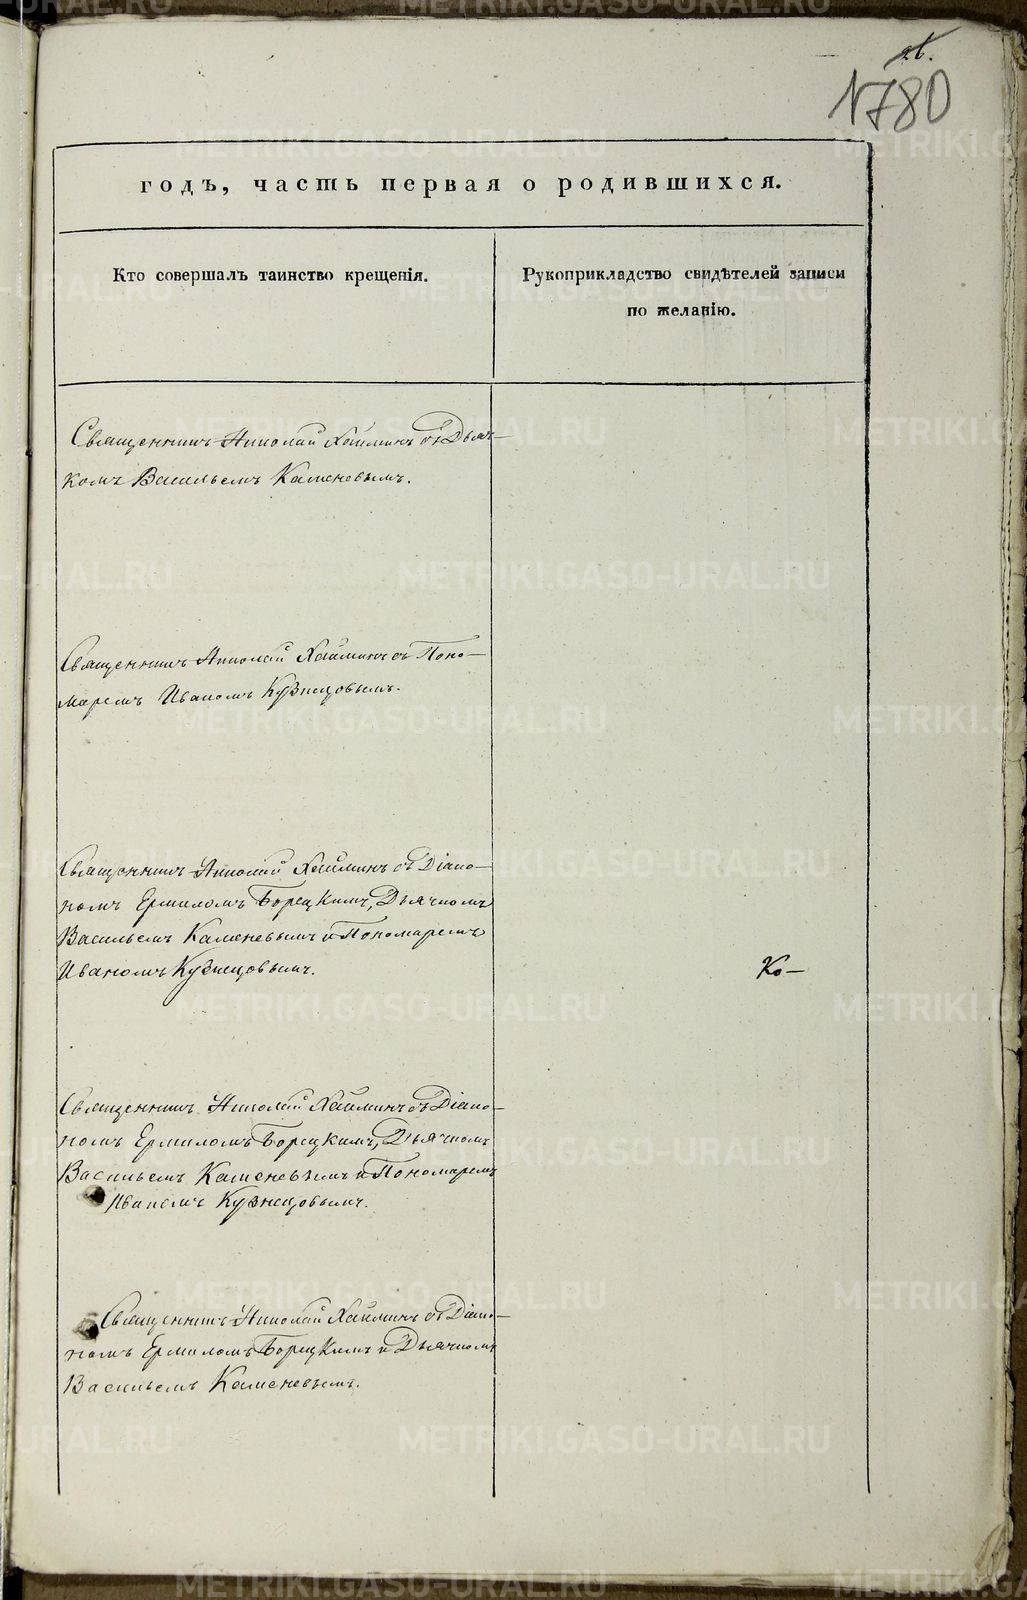 1780
годъ, часть первая о родившихся.
Кто совершалъ таинство крещенія.
Рукоприкладство свидѣтелей записи
по желанію.
Священникъ Николай Хаминъ съ Дьяч-
комъ Васильемъ Каменевымъ.
Священникъ Николай Хаминъ съ Поно-
маремъ Иваномъ Кузнецовымъ.
Священникъ Николай Хаминъ съ Діако-
номъ Ермиломъ Борецкимъ, Дьячкомъ
Васильемъ Каменевымъ и Пономаремъ
Иваномъ Кузнецовымъ.
Ко-
Священникъ Николай Хаминъ съ Діако-
номъ Ермиломъ Борецкимъ, Дьячкомъ
Васильемъ Каменевымъ и Пономаремъ
Иваномъ Кузнецовымъ.
Священникъ Николай Хаминъ съ Діако-
номъ Ермиломъ Борецкимъ и Дьячкомъ
Васильемъ Каменевымъ.
METRIKI.GASO-URAL.RU